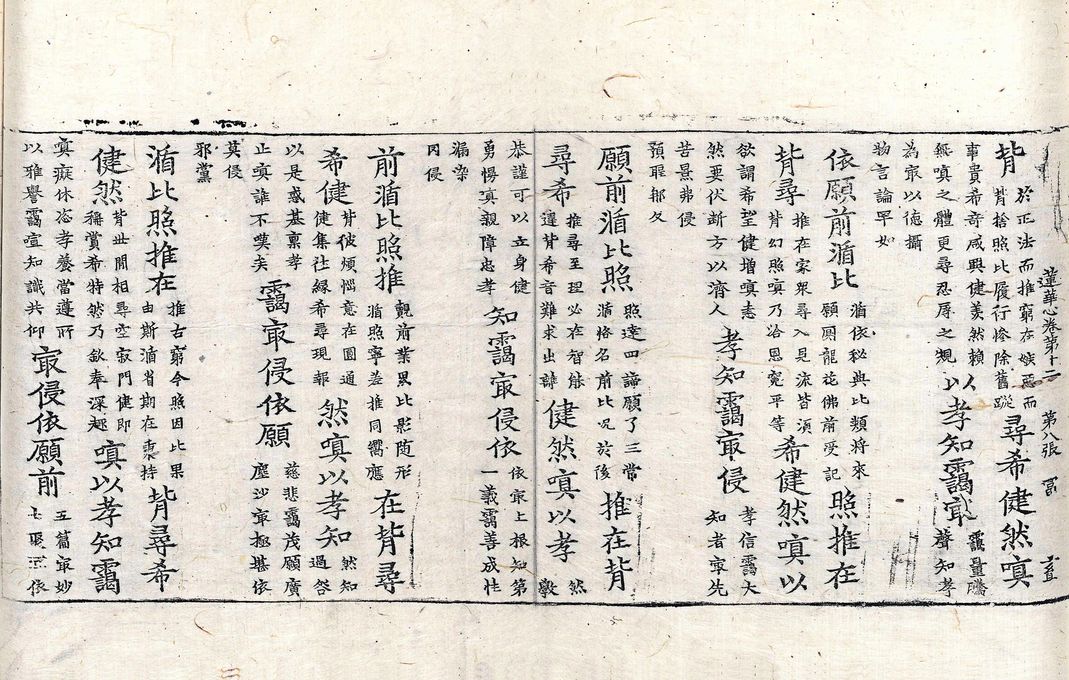 蓮華心卷第十二 第八張
背
於正法而推窮在嫉惡而
背捨照比履行慘除舊蹤
尋希健然嗔
事貴希奇咸興健羡然賴
無嗔之體更尋忍辱之規
以孝知靄最
靄量騰
聲知孝
為最以德攝
物言論早如
依願前循比
循依秘典比類將來
願罽龍花佛前受記
照推在
背尋
推在家衆尋入見流皆須
背幻照嗔乃洽恩冤平等
希健然嗔以
欲謂希望健增嗔恚
然要伏斷方以濟人
孝知靄最侵
孝信靄大
知者最先
苦景弗侵
預聖郍久
願前循比照
照達四諦願了三常
循恪名前比况於後
推在背
尋希
推尋至理必在智能
違背希音難求出離
健然嗔以孝
然
嗷
恭謹可以立身健
勇慢嗔親障忠孝
知靄最侵依
依最上根知第
一義靄善成性
漏染
罔侵
前循比照推
觀前業累比影随形
循照寧差推同嚮應
在背尋
希健
背彼煩惱意在圓通
健集社緣希尋現報
然嗔以孝知
然知
過咎
以是惑基稟孝
止嗔誰不嘆矣
靄最侵依願
慈悲靄茂願廣
塵沙最極堪依
莫侵
邪黨
循比照推在
推古窮今照因比果
由斯循省期在秉持
背尋希
健然
背世間相尋空寂門健即
稱賞希特然乃欽奉深趣
嗔以孝知靄
嗔癡休恣孝養當遵所
以雅譽靄喧知識共仰
最侵依願前
五篇最妙
七聚 依